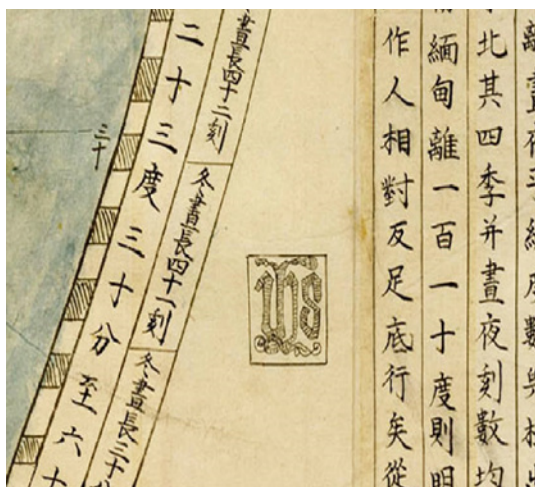 離晝夜平線度數與
北其四季并晝夜刻數均
緬甸離一百一十度則明
作人相對反足底行矣從
IHS
冬晝長四十二刻
冬晝長四十一刻
冬晝長三十
二十三度三十分至六十
三十